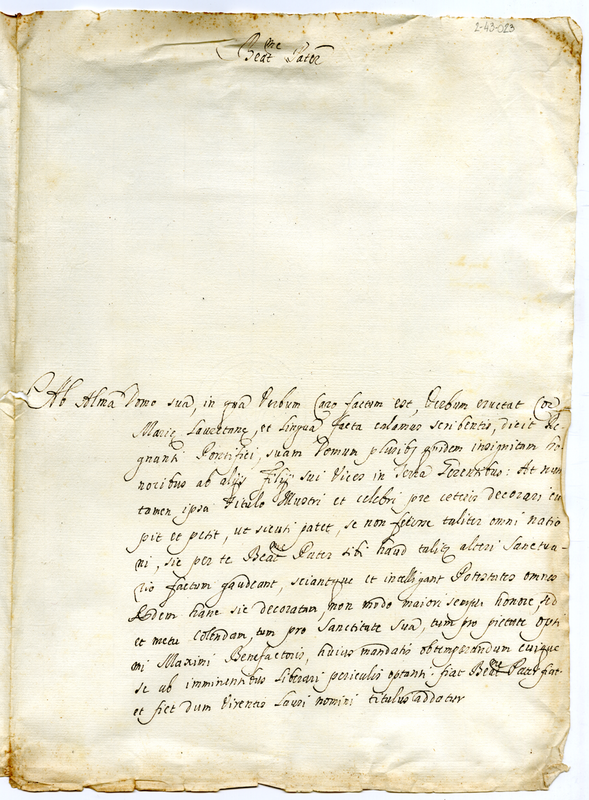 2-43-023
Beat.me Pater
Ab Alma Domo sua, in qua Verbum Caro factum est, Verbum eructat Cor
Mariæ Lauretanę, et lingua facta calamus scribentis, dicit Re-
gnanti Pontifici, suam Domum pluribꝫ quidem insignitam ho
noribus ab alijs filijs sui Vices in terra Gerentibus: At nunc
tamen ipsa titulo Illustri et celebri prę ceteris decorari cu
pit et petit, ut sicuti patet, se non fecisse taliter omni natio
ni, sic per te Beat.me Pater sibi haud taliter alteri Sanctua-
rio factum gaudeant, sciantque et intelligant Potestates omnes
Ædem hanc sic decoratam, non modo maiori semper honore, sed
et metu colendam, tum pro Sanctitate Sua, tum pro pietate opti
mi Maximi Benefactoris, huius mandatis obtemperandum cuique
se ab imminentibus liberari periculis optanti. fiat Beat.me Pater fiat
et fiet dum Virencis Lauri nomini titulus addatur